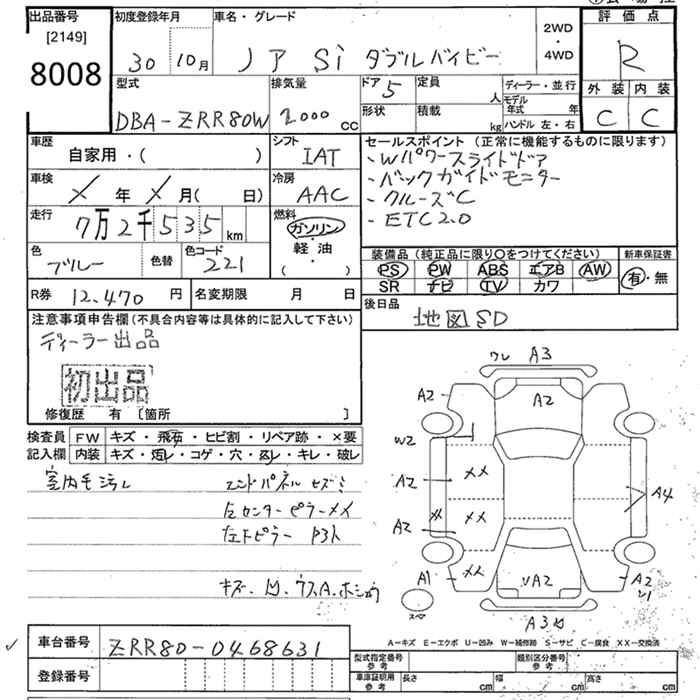 出品番号
[2149]
8008
初度登録年月
30 10月
車名・グレード
ノア Si ダブルバイビー
2WD
・
4WD
評価点
R
外装 内装
C C
型式
DBA-ZRR80W
排気量
2000 cc
ドア 5
形状
定員 人
積載 kg
ディーラー・並行
モデル年式 年
ハンドル 左・右
車歴
自家用・( )
シフト
IAT
車検
メ 年 メ 月( 日)
冷房
AAC
走行
7万2千535 km
燃料
ガソリン
軽油
( )
色
ブルー
色替
色コード
221
セールスポイント (正常に機能するものに限ります)
・Wパワースライドドア
・バックガイドモニター
・クルーズC
・ETC2.0
装備品 (純正品に限り○をつけてください)
PS PW ABS エアB AW
SR ナビ TV カワ
新車保証書
有・無
R券 12,470 円
名変期限 月 日
後日品
地図SD
注意事項申告欄 (不具合内容等は具体的に記入して下さい)
ディーラー出品
初出品
修復歴 有 〔箇所 〕
検査員記入欄
FW キズ・飛石・ヒビ割・リペア跡・×要
内装 キズ・汚レ・コゲ・穴・スレ・キレ・破レ
室内モ汚レ
エンドパネル ヒズミ
右センターピラーメイ
左Fピラー
ワレ A3
A2
A2
W2
A2
××
A2
××
A4
A1
××
VA2
A2
スペア
A3
A-キズ E-エクボ U-凹み W-補修跡 S-サビ C-腐食 XX-交換済
車台番号
ZRR80-0468631
登録番号
型式指定番号
参考
類別区分番号
参考
車庫証明用
参考
長さ cm
幅 cm
高さ cm